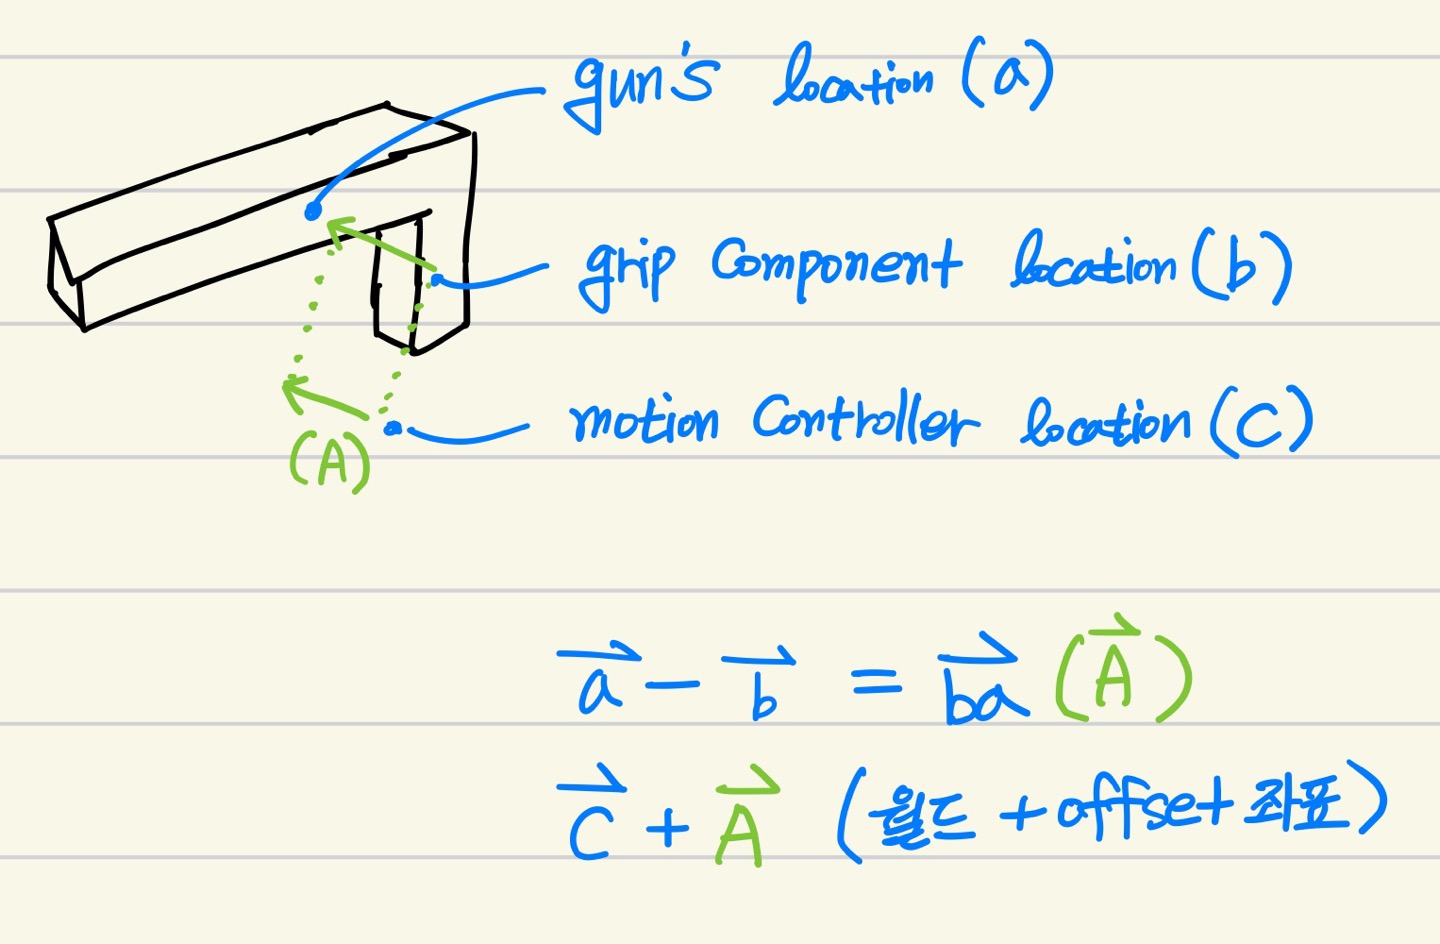 gun's location (a)
grip Component location (b)
motion Controller location (C)
(A)
a - b = ba (A)
C + A (월드 + offset 좌표)